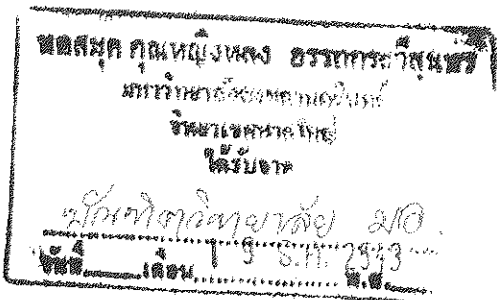 หอสมุด คุณหญิงหลง อรรถกระวีสุนทร
มหาวิทยาลัยสงขลานครินทร์
วิทยาเขตหาดใหญ่
ได้รับจาก
บัณฑิตวิทยาลัย มอ.
วันที่ เดือน 19 ธ.ค. 2533 พ.ศ.